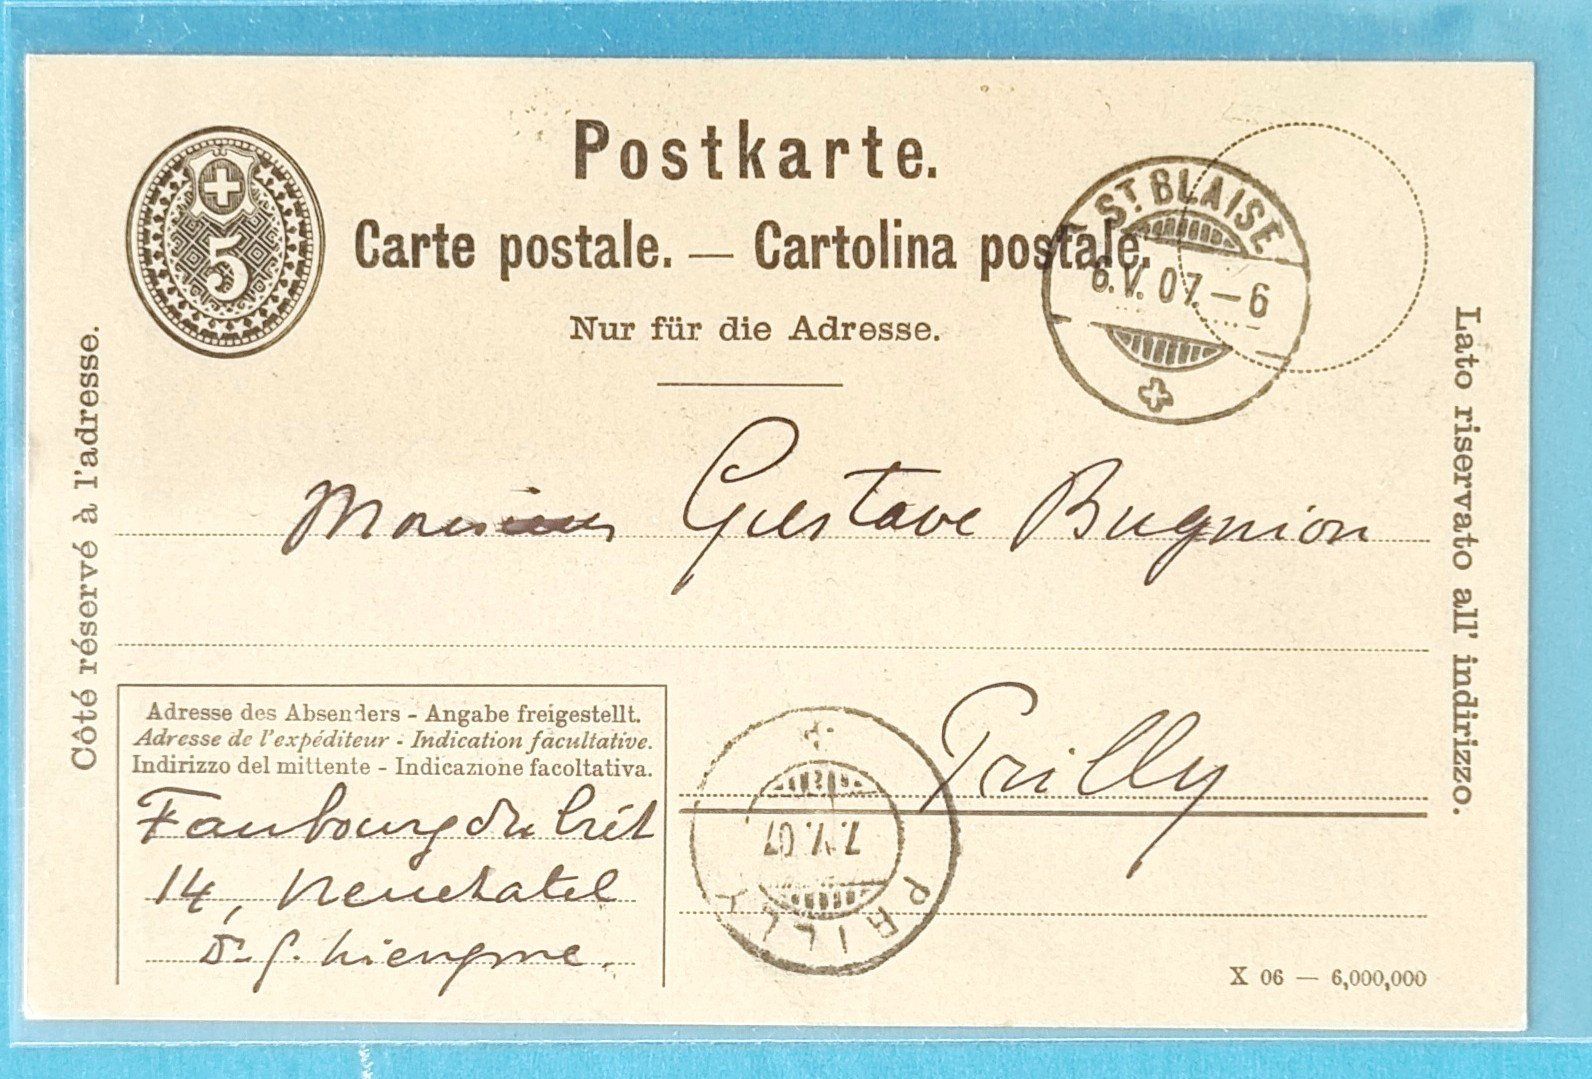 5
Postkarte.
Carte postale. — Cartolina postale.
Nur für die Adresse.
ST. BLAISE
6.V.07.–6
Côté réservé à l'adresse.
Lato riservato all' indirizzo.
Monsieur Gustave Bugnion
Prilly
Adresse des Absenders - Angabe freigestellt.
Adresse de l'expéditeur - Indication facultative.
Indirizzo del mittente - Indicazione facoltativa.
Faubourg du Crêt
14, Neuchatel
Dr G. Liengme.
PRILLY
7.V.07
X 06 — 6,000,000